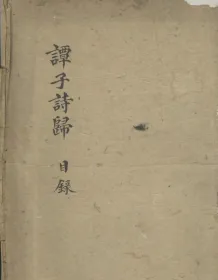 譚子詩歸 目録